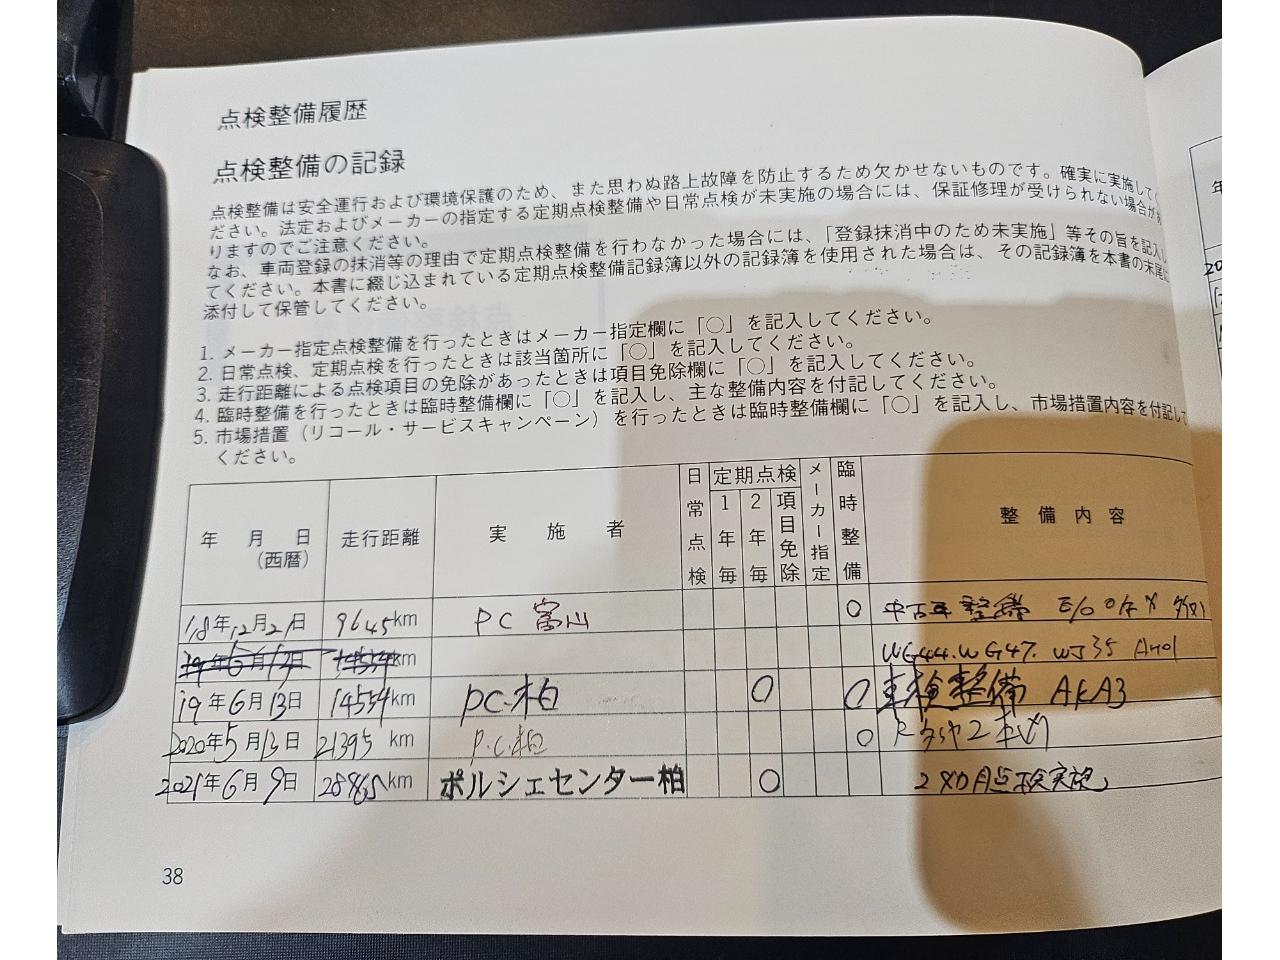 点検整備履歴
点検整備の記録
点検整備は安全運行および環境保護のため、また思わぬ路上故障を防止するため欠かせないものです。確実に実施して
ださい。法定およびメーカーの指定する定期点検整備や日常点検が未実施の場合には、保証修理が受けられない場合が
りますのでご注意ください。
なお、車両登録の抹消等の理由で定期点検整備を行わなかった場合には、「登録抹消中のため未実施」等その旨を記入し
てください。本書に綴じ込まれている定期点検整備記録簿以外の記録簿を使用された場合は、その記録簿を本書の末尾に
添付して保管してください。
1. メーカー指定点検整備を行ったときはメーカー指定欄に「○」を記入してください。
2. 日常点検、定期点検を行ったときは該当箇所に「○」を記入してください。
3. 走行距離による点検項目の免除があったときは項目免除欄に「○」を記入してください。
4. 臨時整備を行ったときは臨時整備欄に「○」を記入し、主な整備内容を付記してください。
5. 市場措置（リコール・サービスキャンペーン）を行ったときは臨時整備欄に「○」を記入し、市場措置内容を付記して
ください。
年 月 日（西暦） 走行距離 実施者 日常点検 定期点検 1年毎 2年毎 項目免除 メーカー指定 臨時整備 整備内容
18年12月21日 9645km PC 富山 ○ 中古車整備
19年6月13日 14554km WG44.WG47. WJ35 AH01
19年6月13日 14554km PC.柏 ○ ○ 車検整備 AKA3
2020年5月13日 21395km P.C.柏 ○ Rタイヤ2本
2021年6月9日 km ポルシェセンター柏 ○ 点検実施
38